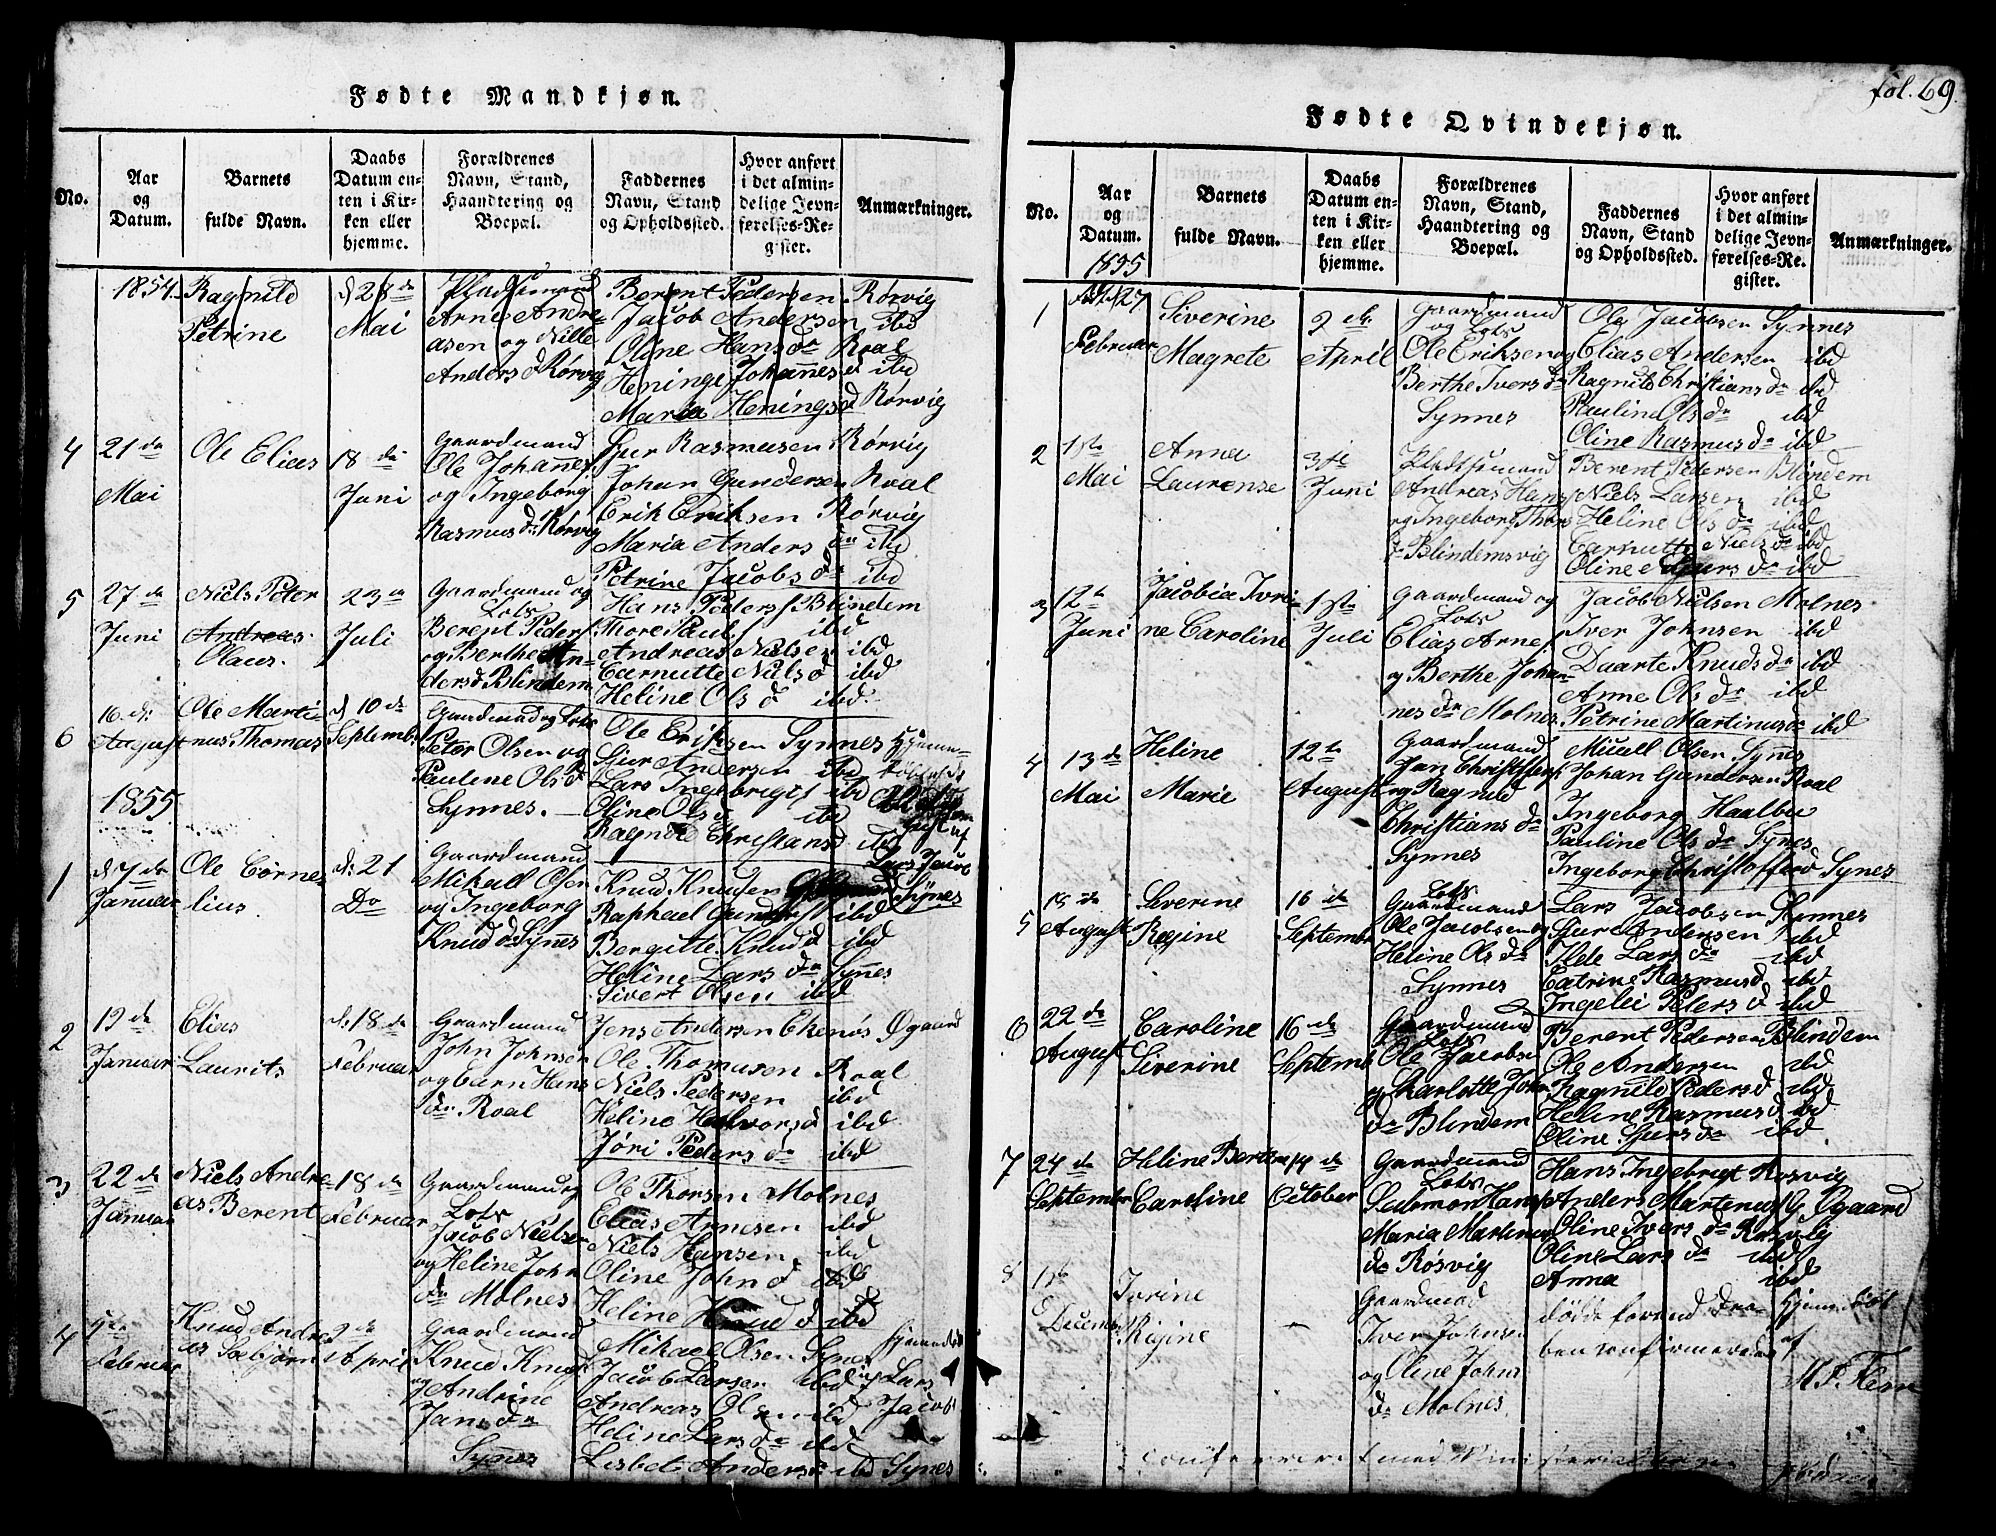 Fødte Mandkjøn.
No.
Aar
og
Datum.
Barnets
fulde Navn.
Daabs
Datum en-
ten i Kir-
ken eller
hjemme.
Forældrenes
Navn, Stand,
Haandtering og
Boepæl.
Faddernes
Navn, Stand
og Opholdssted.
Hvor anført
i det almin-
delige Jevn-
førelses-Re-
gister.
Anmærkninger.
1854
Ragnild
Petrine
d 28de
Mai
Pladsmand
Arne Andre-
asen og Nille
Anders d Rørvig
Berent Pedersen Rørvig
Jacob Andersen ibd
Oline Hans dr Roal
Heninge Johannes d ibd
Maria Henings d Rørvig
4
21 de
Mai
Ole Elias
18 de
Juni
Gaardmand
Ole Johannes
og Ingeborg
Rasmus dr Rørvig
Sjur Rasmusen Rørvig
Johan Gundersen Roal
Erik Eriksen Rørvig
Maria Anders dr ibd
Petrine Jacobs dr ibd
5
27 de
Juni
Niels Peter
Andreas
Olaus.
23 de
Juli
Gaardmand og
Lods
Berent Peders
og Berthe An-
ders d Blindem
Hans Peders Blindem
Thore Pauls ibd
Andreas Nielsen ibd
Carnutte Niels d ibd
Heline Ols d ibd
6
16 de
August
Ole Marti-
nus Thomas
d 10 de
Septembr
Gaardmand og Lods
Peter Olsen og
Pauline Ols d
Synnes.
Ole Eriksen Synnes
Sjur Andersen ibd
Lars Ingebrigts ibd
Oline Ols d ibd
Ragnild Christians d ibd
Hjemme-
døbt
af
Lars Jacob
Synes
1855
1
d 7 de
Januar
Ole Corne-
lius.
d. 21
Do
Gaardmand
Mikall Olsen
og Ingeborg
Knud d Synnes
Knud Knudsen
Raphael Gunders ibd
Bergitte Knud d ibd
Heline Lars dr Synnes
Sivert Olsen ibd
2
12 de
Januar
Elias
Laurits
d. 18 de
Februar
Gaardmand
John Johnsen
og Karn Hans
dr Roal
Jens Andersen Ekenøs Øgaard
Ole Thomasen Roal
Niels Pedersen ibd
Heline Halvors d ibd
Jøri Peders dr ibd
3
22 de
Januar
Niels Andre-
as Berent
18 de
Februar
Gaardmand og
Lods
Jacob Nielsen
og Heline John
dr Molnes
Ole Thorsen Molnes
Elias Arnesen ibd
Niels Hansen ibd
Oline John d ibd
Heline Knud d ibd
4
Februar
Knud Andre-
as Torbjørn
2 de
April
Gaardmand
Knud Knuds
og Andrine
Jans dr
Synnes
Mikael Olsen Synes
Jacob Larsen ibd
Andreas Olsen ibd
Heline Lars dr ibd
Lisbet Anders dr ibd
Hjemmedøbt
af Lars
Jacobs
Synes
fol. 69.
Fødte Qvindekjøn.
No.
Aar
og
Datum.
Barnets
fulde Navn.
Daabs
Datum en-
ten i Kir-
ken eller
hjemme.
Forældrenes
Navn, Stand,
Haandtering og
Boepæl.
Faddernes
Navn, Stand
og Opholdssted.
Hvor anført
i det almin-
delige Jevn-
førelses-Re-
gister.
Anmærkninger.
1855
1
27
Februar
Siverine
Magrete
2 de
April
Gaardmand
og Lods
Ole Eriksen og
Berthe Ivers dr
Synnes
Ole Jacobsen Synnes
Elias Andersen ibd
Ragnild Christians dr ibd
Pauline Ols dr ibd
Oline Rasmus dr ibd
2
1ste
Mai
Anna
Laurense
3die
Juni
Pladsmand
Andreas Hans
og Ingeborg Thors
dr Blindemsvig
Berent Pedersen Blindem
Niels Larsen ibd
Heline Ols dr ibd
Carnutte Niels dr ibd
Oline Sjurs dr ibd
3
12te
Juni
Jacobia Iveri-
ne Caroline
1ste
Juli
Gaardmand og
Lods
Elias Arnes
og Berthe Johan-
nes dr Molnes
Jacob Nielsen Molnes
Iver Johnsen ibd
Daarte Knuds dr ibd
Anne Ols dr ibd
Petrine Martinus dr ibd
4
13 de
Mai
Heline
Marie
12te
August
Gaardmand
Jan Christoffers
og Ragnild
Christians dr
Synnes
Micall Olsen Synes
Johan Gundersen Roal
Ingeborg Haalbu
Pauline Ols dr Synes
Ingeborg Christoffer d Synes
5
18 de
August
Severine
Regine
16 de
Septembr
Lods
Gaardmand
Ole Jacobsen og
Heline Ols dr
Synnes
Lars Jacobsen Synnes
Sjur Andersen ibd
Ilde Lars dr ibd
Catrine Rasmus d ibd
Ingelei Peters d ibd
6
22 de
August
Caroline
Siverine
16 de
Septembr
Gaardmand
Lods
Ole Jacobsen
og Charlotte John
dr Blindem
Berent Pedersen Blindem
Ole Andersen ibd
Ragnild Peders d ibd
Heline Rasmus d ibd
Oline Sjurs dr ibd
7
24 de
Septembr
Heline Berte
Caroline
14 de
October
Gaardmand
Lods
Salomon Hans
Maria Martinus
dr Røsvig
Hans Ingebrigt Rosvig
Anders Martenus Øgaard
Oline Ivers dr Rosvig
Oline Lars dr ibd
Anna ibd
8
1ste
Decembr
Ivrine
Regine
Gaardmand
Iver Johnsen
og Oline Johns
dr Molnes
dødde forend Daa-
ben confirmeredes
Hjemmedøbt
af
conferreret med Ministerialbogen